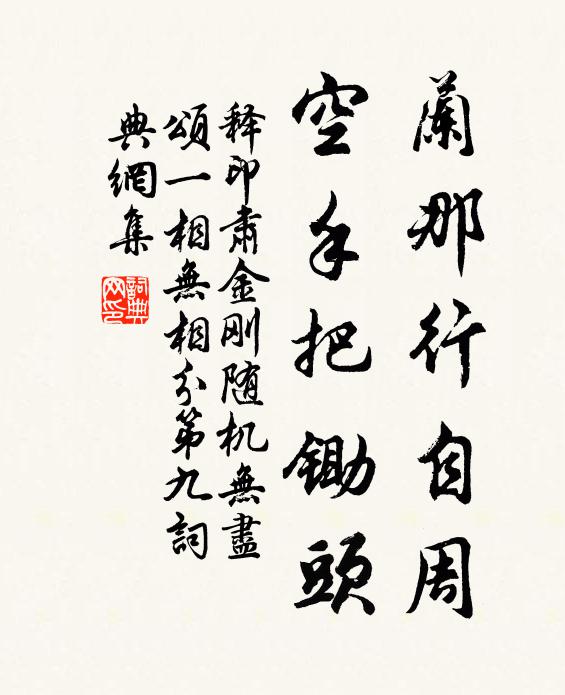 蘭那行自周
空手把鋤頭
释印肃金刚随机無盡
頌一相無相分第九詞
典網集
詞典网印